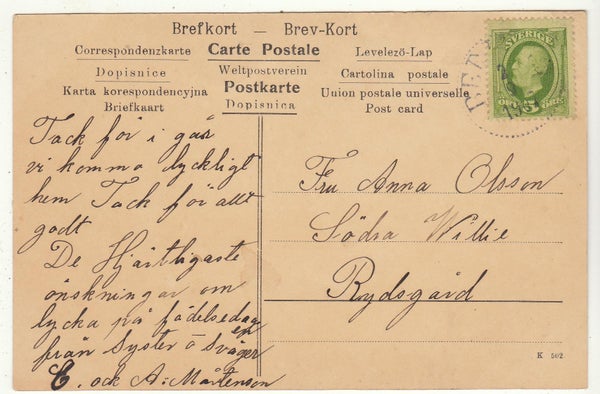 Brefkort — Brev-Kort
Correspondenzkarte Carte Postale Levelező-Lap
Dopisnice Weltpostverein Cartolina postale
Karta korespondencyjna Postkarte Union postale universelle
Briefkaart Dopisnica Post card
SVERIGE
Tack för i går
vi komma lyckligt
hem Tack för allt
godt
De Hjärtligaste
önskningar om
lycka på födelsedagen
från Syster o Svåger
E. och A. Mårtenson
Fru Anna Olsson
Södra Willie
Rydsgård
K 502